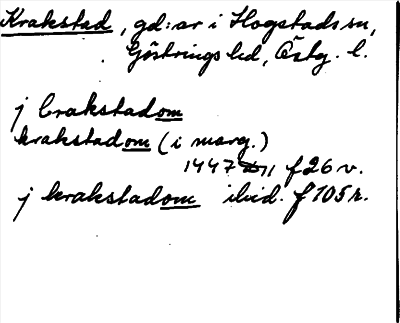 Krakstad, gd:ar i Hogstads sn,
Göstrings hd, Östg. l.
j brakstadom
krakstadom (i marg.)
1447 f 26 v.
j krakstadom ibid. f 105 r.